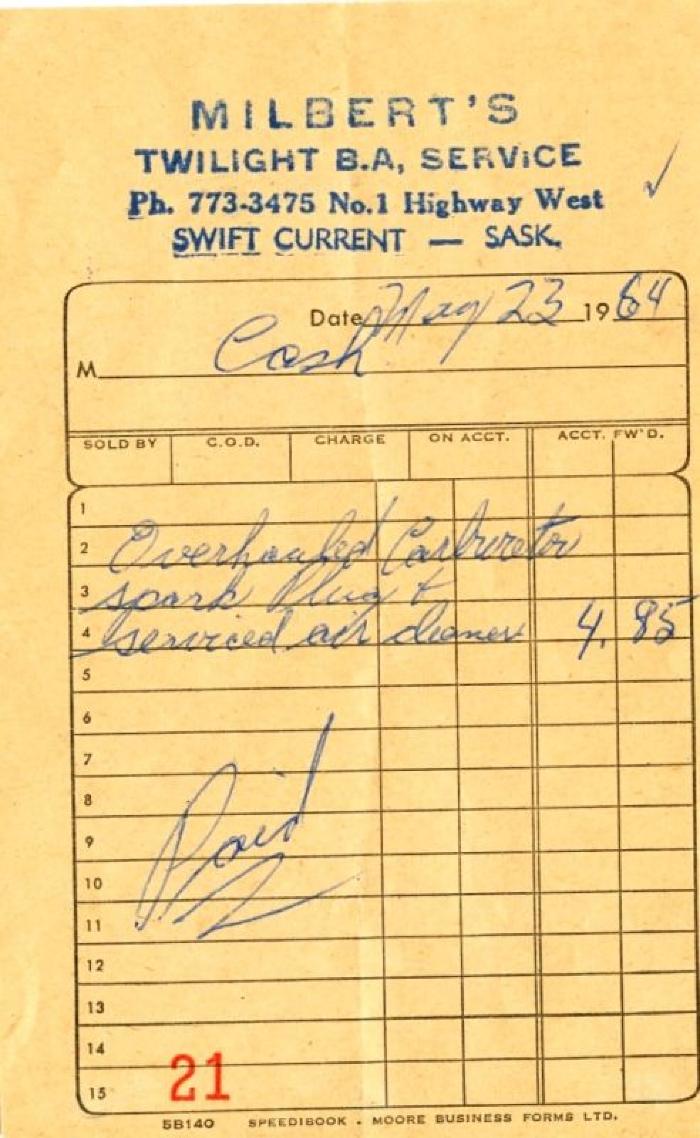 MILBERT'S
TWILIGHT B.A, SERViCE
Ph. 773-3475 No.1 Highway West
SWIFT CURRENT — SASK.
Date May 23 1964
M Cash
SOLD BY C.O.D. CHARGE ON ACCT. ACCT. FW'D.
1
2 Overhauled Carburetor
3 spark Plug &
4 serviced air cleaner 4.85
5
6
7
8
9 Paid
10
11
12
13
14
15 21
5B140 SPEEDIBOOK • MOORE BUSINESS FORMS LTD.